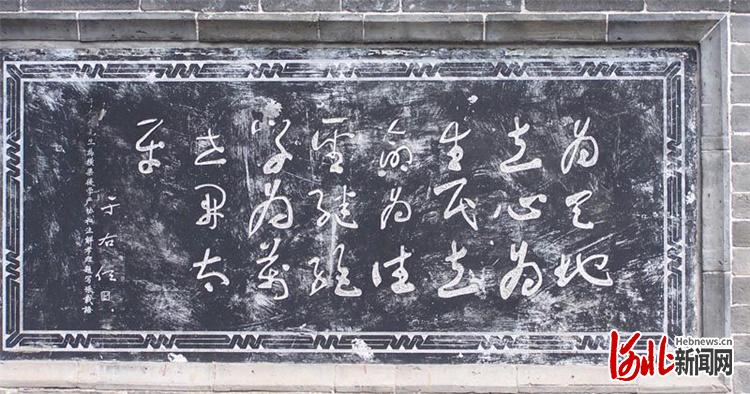 为天地
立心为
生民立
命为往
聖继绝
学为萬
世開太
平
于右任
河北
Hebnews.cn
新闻网